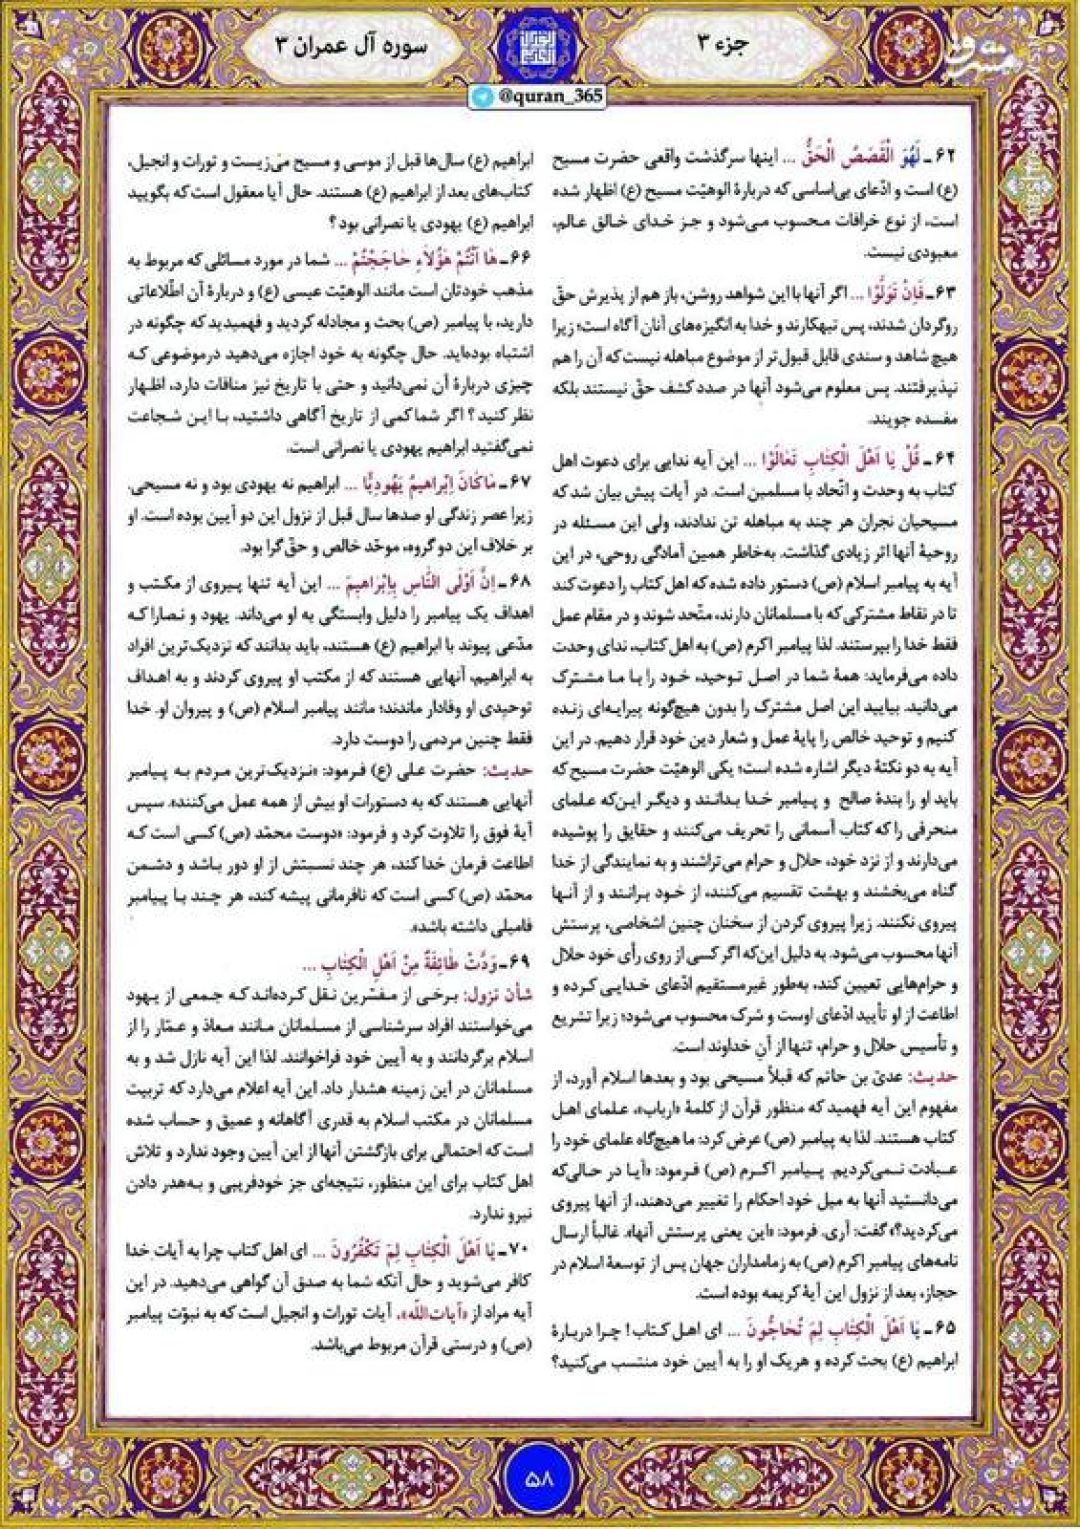 جزء ۳
سوره آل عمران ۳
@quran_365
مشرق
۶۲ـ لَهُوَ الْقَصَصُ الْحَقُّ ... اینها سرگذشت واقعی حضرت مسیح
(ع) است و ادّعای بی‌اساسی که دربارهٔ الوهیّت مسیح (ع) اظهار شده
است، از نوع خرافات محسوب می‌شود و جز خدای خالق عالم،
معبودی نیست.
۶۳ـ فَاِنْ تَوَلَّوْا ... اگر آنها با این شواهد روشن، باز هم از پذیرش حقّ
روگردان شدند، پس تبهکارند و خدا به انگیزه‌های آنان آگاه است؛ زیرا
هیچ شاهد و سندی قابل قبول‌تر از موضوع مباهله نیست که آن را هم
نپذیرفتند. پس معلوم می‌شود آنها در صدد کشف حقّ نیستند بلکه
مفسده جویند.
۶۴ـ قُلْ یٰا اَهْلَ الْکِتٰابِ تَعٰالَوْا ... این آیه ندایی برای دعوت اهل
کتاب به وحدت و اتّحاد با مسلمین است. در آیات پیش بیان شد که
مسیحیان نجران هر چند به مباهله تن ندادند، ولی این مسئله در
روحیهٔ آنها اثر زیادی گذاشت. به‌خاطر همین آمادگی روحی، در این
آیه به پیامبر اسلام (ص) دستور داده شده که اهل کتاب را دعوت کند
تا در نقاط مشترکی که با مسلمانان دارند، متّحد شوند و در مقام عمل
فقط خدا را بپرستند. لذا پیامبر اکرم (ص) به اهل کتاب، ندای وحدت
داده می‌فرماید: همهٔ شما در اصل توحید، خود را با ما مشترک
می‌دانید. بیایید این اصل مشترک را بدون هیچ‌گونه پیرایه‌ای زنده
کنیم و توحید خالص را پایهٔ عمل و شعار دین خود قرار دهیم. در این
آیه به دو نکتهٔ دیگر اشاره شده است؛ یکی الوهیّت حضرت مسیح که
باید او را بندهٔ صالح و پیامبر خدا بدانند و دیگر این‌که علمای
منحرفی را که کتاب آسمانی را تحریف می‌کنند و حقایق را پوشیده
می‌دارند و از نزد خود، حلال و حرام می‌تراشند و به نمایندگی از خدا
گناه می‌بخشند و بهشت تقسیم می‌کنند، از خود برانند و از آنها
پیروی نکنند. زیرا پیروی کردن از سخنان چنین اشخاصی، پرستش
آنها محسوب می‌شود. به دلیل این‌که اگر کسی از روی رأی خود حلال
و حرام‌هایی تعیین کند، به‌طور غیرمستقیم ادّعای خدایی کرده و
اطاعت از او تأیید ادّعای اوست و شرک محسوب می‌شود؛ زیرا تشریع
و تأسیس حلال و حرام، تنها از آنِ خداوند است.
حدیث: عدیّ بن حاتم که قبلاً مسیحی بود و بعدها اسلام آورد، از
مفهوم این آیه فهمید که منظور قرآن از کلمهٔ «ارباب»، علمای اهل
کتاب هستند. لذا به پیامبر (ص) عرض کرد: ما هیچ‌گاه علمای خود را
عبادت نمی‌کردیم. پیامبر اکرم (ص) فرمود: «آیا در حالی‌که
می‌دانستید آنها به میل خود احکام را تغییر می‌دهند، از آنها پیروی
می‌کردید؟» گفت: آری. فرمود: «این یعنی پرستش آنها». غالباً ارسال
نامه‌های پیامبر اکرم (ص) به زمامداران جهان پس از توسعهٔ اسلام در
حجاز، بعد از نزول این آیهٔ کریمه بوده است.
۶۵ـ یٰا اَهْلَ الْکِتٰابِ لِمَ تُحٰاجُّونَ ... ای اهل کتاب! چرا دربارهٔ
ابراهیم (ع) بحث کرده و هریک او را به آیین خود منتسب می‌کنید؟
ابراهیم (ع) سال‌ها قبل از موسی و مسیح می‌زیست و تورات و انجیل،
کتاب‌های بعد از ابراهیم (ع) هستند. حال آیا معقول است که بگویید
ابراهیم (ع) یهودی یا نصرانی بود؟
۶۶ـ هٰا اَنْتُمْ هٰؤُلٰاءِ حٰاجَجْتُمْ ... شما در مورد مسائلی که مربوط به
مذهب خودتان است مانند الوهیّت عیسی (ع) و دربارهٔ آن اطّلاعاتی
دارید، با پیامبر (ص) بحث و مجادله کردید و فهمیدید که چگونه در
اشتباه بوده‌اید. حال چگونه به خود اجازه می‌دهید درموضوعی که
چیزی دربارهٔ آن نمی‌دانید و حتی با تاریخ نیز منافات دارد، اظهار
نظر کنید؟ اگر شما کمی از تاریخ آگاهی داشتید، با این شجاعت
نمی‌گفتید ابراهیم یهودی یا نصرانی است.
۶۷ـ مٰاکٰانَ اِبْرٰاهیمُ یَهُودِیًّا ... ابراهیم نه یهودی بود و نه مسیحی.
زیرا عصر زندگی او صدها سال قبل از نزول این دو آیین بوده است. او
بر خلاف این دو گروه، موحّد خالص و حقّ‌گرا بود.
۶۸ـ اِنَّ اَوْلَی النّٰاسِ بِاِبْرٰاهیمَ ... این آیه تنها پیروی از مکتب و
اهداف یک پیامبر را دلیل وابستگی به او می‌داند. یهود و نصارا که
مدّعی پیوند با ابراهیم (ع) هستند، باید بدانند که نزدیک‌ترین افراد
به ابراهیم، آنهایی هستند که از مکتب او پیروی کردند و به اهداف
توحیدی او وفادار ماندند؛ مانند پیامبر اسلام (ص) و پیروان او. خدا
فقط چنین مردمی را دوست دارد.
حدیث: حضرت علی (ع) فرمود: «نزدیک‌ترین مردم به پیامبر
آنهایی هستند که به دستورات او بیش از همه عمل می‌کنند». سپس
آیهٔ فوق را تلاوت کرد و فرمود: «دوست محمّد (ص) کسی است که
اطاعت فرمان خدا کند، هر چند نسبتش از او دور باشد و دشمن
محمّد (ص) کسی است که نافرمانی پیشه کند، هر چند با پیامبر
فامیلی داشته باشد».
۶۹ـ وَدَّتْ طٰائِفَةٌ مِنْ اَهْلِ الْکِتٰابِ ...
شأن نزول: برخی از مفسّرین نقل کرده‌اند که جمعی از یهود
می‌خواستند افراد سرشناسی از مسلمانان مانند معاذ و عمّار را از
اسلام برگردانند و به آیین خود فراخوانند. لذا این آیه نازل شد و به
مسلمانان در این زمینه هشدار داد. این آیه اعلام می‌دارد که تربیت
مسلمانان در مکتب اسلام به قدری آگاهانه و عمیق و حساب شده
است که احتمالی برای بازگشتن آنها از این آیین وجود ندارد و تلاش
اهل کتاب برای این منظور، نتیجه‌ای جز خودفریبی و به‌هدر دادن
نیرو ندارد.
۷۰ـ یٰا اَهْلَ الْکِتٰابِ لِمَ تَکْفُرُونَ ... ای اهل کتاب چرا به آیات خدا
کافر می‌شوید و حال آنکه شما به صدق آن گواهی می‌دهید. در این
آیه مراد از «آیات‌الله»، آیات تورات و انجیل است که به نبوّت پیامبر
(ص) و درستی قرآن مربوط می‌باشد.
۵۸